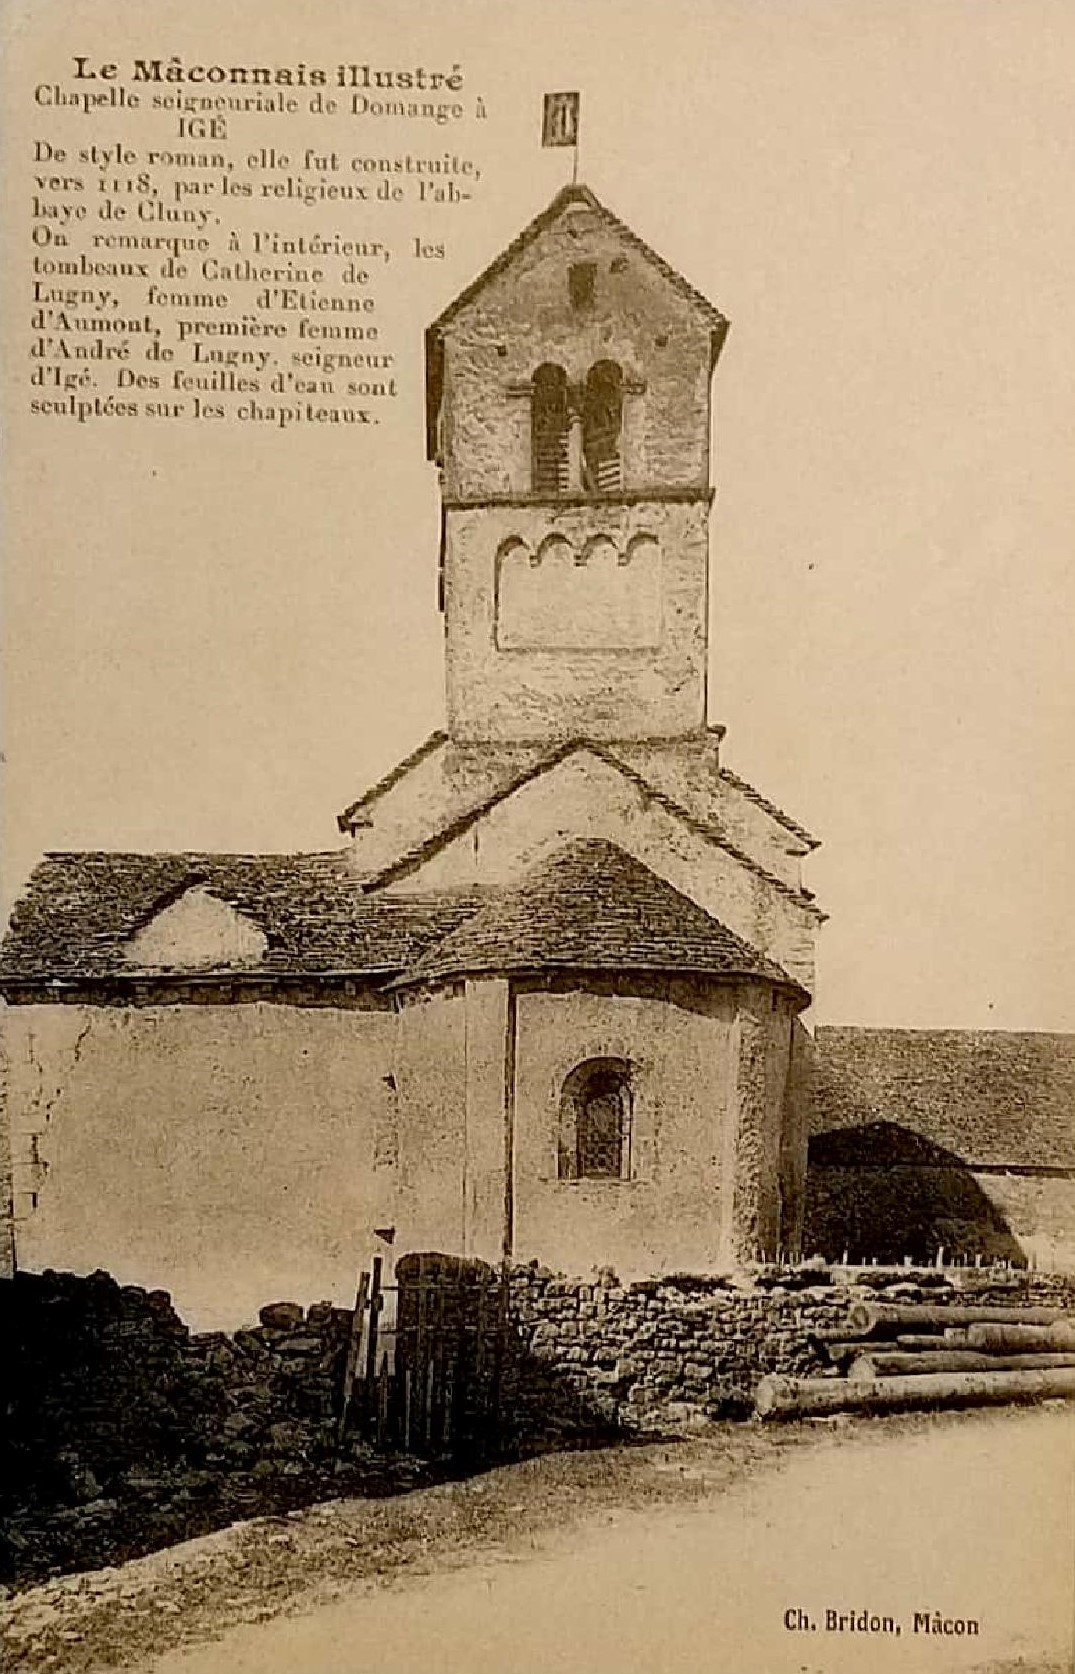 Le Mâconnais illustré
Chapelle seigneuriale de Domange à
IGÉ
De style roman, elle fut construite,
vers 1118, par les religieux de l'ab-
baye de Cluny.
On remarque à l'intérieur, les
tombeaux de Catherine de
Lugny, femme d'Etienne
d'Aumont, première femme
d'André de Lugny, seigneur
d'Igé. Des feuilles d'eau sont
sculptées sur les chapiteaux.
Ch. Bridon, Mâcon